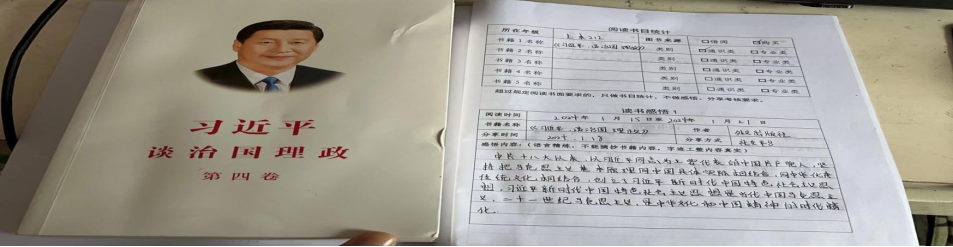 习近平
谈治国理政
第四卷
阅读书目统计
所在年级
图书来源 □借阅 ☑购买
书籍1名称 《习近平谈治国理政》 类别 ☑通识类 □专业类
书籍2名称 类别 □通识类 □专业类
书籍3名称 类别 □通识类 □专业类
书籍4名称 类别 □通识类 □专业类
书籍5名称 类别 □通识类 □专业类
超过规定阅读书面要求的,只做书目统计,不做感悟、分享考核要求。
读书感悟1
阅读时间 2024年1月15日至2024年1月21日
书籍名称 《习近平谈治国理政》 作者 外文出版社
分享时间 2024 1.8 分享方式
感悟内容:(语言精练,不能摘抄书籍内容,字迹工整内容真实)
中共十八大以来,以习近平同志为主要代表的中国共产党人,坚
持把马克思主义基本原理同中国具体实际相结合、同中华优秀
传统文化相结合,创立了习近平新时代中国特色社会主义思
想,习近平新时代中国特色社会主义思想是当代中国马克思主
义、二十一世纪马克思主义,是中华文化和中国精神的时代精
华。